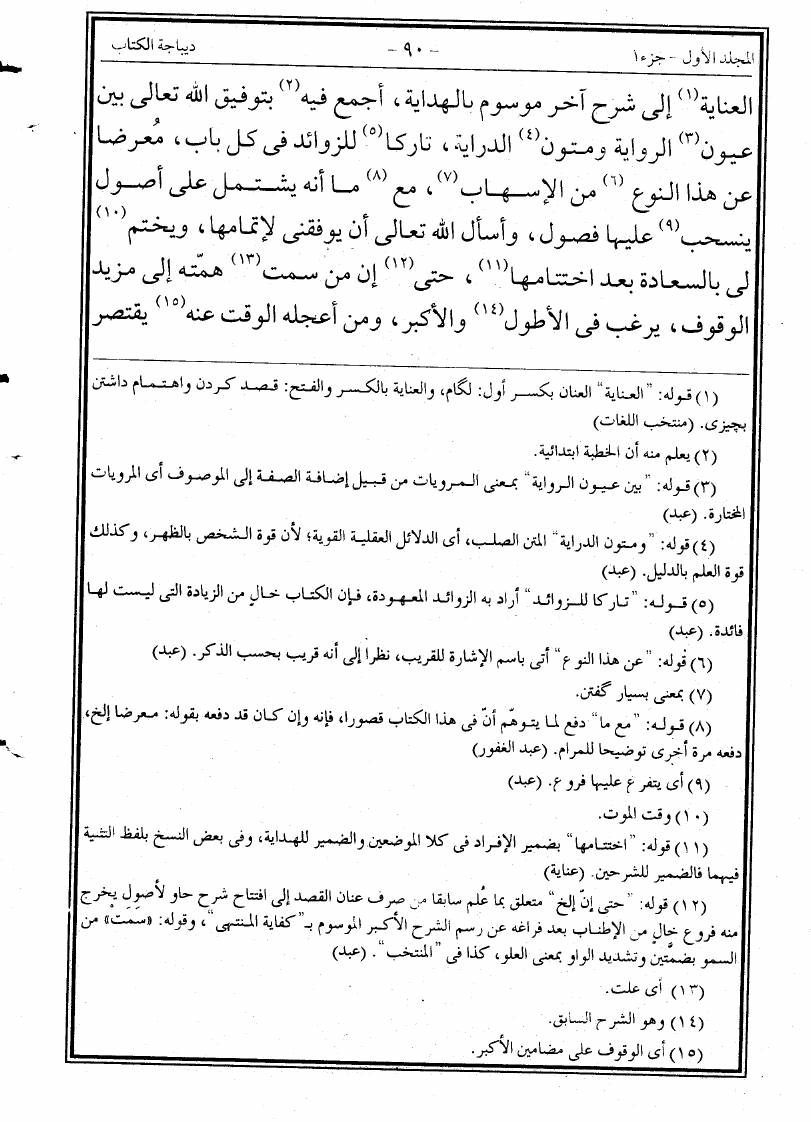 المجلد الأول - جزء١ - ٩٠ - ديباجة الكتاب
العناية(١) إلى شرح آخر موسوم بالهداية، أجمع فيه(٢) بتوفيق الله تعالى بين
عيون(٣) الرواية ومتون(٤) الدراية، تاركا(٥) للزوائد فى كل باب، مُعرضا
عن هذا النوع(٦) من الإسهاب(٧)، مع(٨) ما أنه يشتمل على أصول
ينسحب(٩) عليها فصول، وأسأل الله تعالى أن يوفقنى لإتمامها، ويختم(١٠)
لى بالسعادة بعد اختتامها(١١)، حتى(١٢) إن من سمت(١٣) همّته إلى مزيد
الوقوف، يرغب فى الأطول(١٤) والأكبر، ومن أعجله الوقت عنه(١٥) يقتصر
(١) قوله: "العناية" العنان بكسر أول: لگام، والعناية بالكسر والفتح: قصد كردن واهتمام داشتن
بچيزى. (منتخب اللغات)
(٢) يعلم منه أن الخطبة ابتدائية.
(٣) قوله: "بين عيون الرواية" بمعنى المرويات من قبيل إضافة الصفة إلى الموصوف أى المرويات
المختارة. (عبد)
(٤) قوله: "ومتون الدراية" المتن الصلب، أى الدلائل العقلية القوية؛ لأن قوة الشخص بالظهر، وكذلك
قوة العلم بالدليل. (عبد)
(٥) قوله: "تاركا للزوائد" أراد به الزوائد المعهودة، فإن الكتاب خالٍ من الزيادة التى ليست لها
فائدة. (عبد)
(٦) قوله: "عن هذا النوع" أتى باسم الإشارة للقريب، نظرا إلى أنه قريب بحسب الذكر. (عبد)
(٧) بمعنى بسيار گفتن.
(٨) قوله: "مع ما" دفع لما يتوهّم أنّ فى هذا الكتاب قصورا، فإنه وإن كان قد دفعه بقوله: معرضا إلخ،
دفعه مرة أخرى توضيحا للمرام. (عبد الغفور)
(٩) أى يتفرع عليها فروع. (عبد)
(١٠) وقت الموت.
(١١) قوله: "اختتامها" بضمير الإفراد فى كلا الموضعين والضمير للهداية، وفى بعض النسخ بلفظ التثنية
فيهما فالضمير للشرحين. (عناية)
(١٢) قوله: "حتى إنّ إلخ" متعلق بما عُلم سابقا من صرف عنان القصد إلى افتتاح شرح حاو لأصول يخرج
منه فروع خالٍ من الإطناب بعد فراغه عن رسم الشرح الأكبر الموسوم بـ"كفاية المنتهى"، وقوله: «سَمَتْ» من
السمو بضمّتين وتشديد الواو بمعنى العلو، كذا فى "المنتخب". (عبد)
(١٣) أى علت.
(١٤) وهو الشرح السابق.
(١٥) أى الوقوف على مضامين الأكبر.